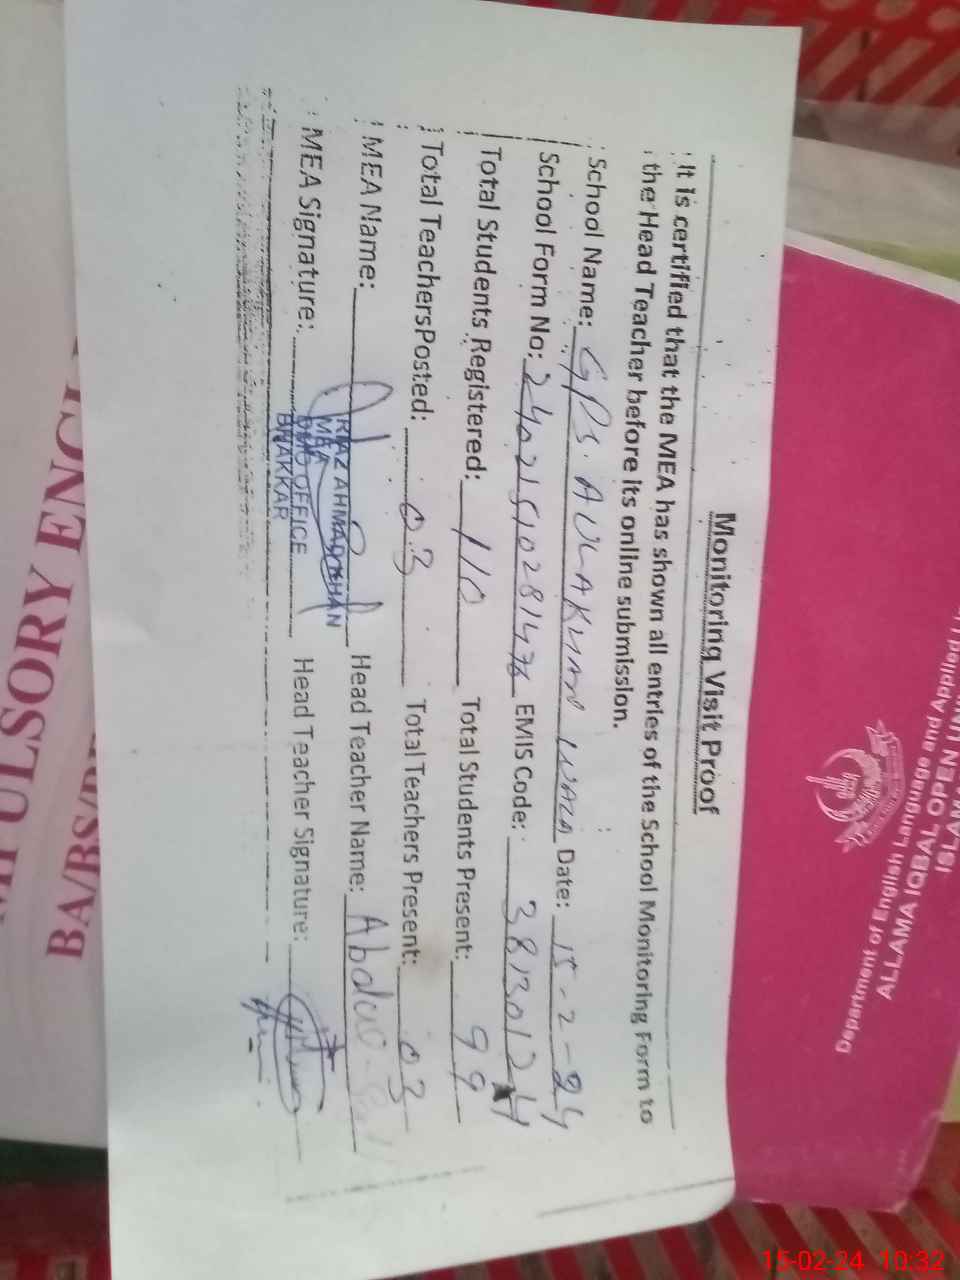 Monitoring Visit Proof
It is certified that the MEA has shown all entries of the School Monitoring Form to
the Head Teacher before its online submission.
School Name: GPS. AULAKHAN WALA Date: 15-2-24
School Form No: EMIS Code: 38130124
Total Students Registered: 110 Total Students Present: 99
Total TeachersPosted: 03 Total Teachers Present: 03
MEA Name: Head Teacher Name: Abdul
MEA Signature: Head Teacher Signature:
RIAZ AHMAD KHAN
MEA
DMO OFFICE
BHAKKAR
Department of English Language and Applied
ALLAMA IQBAL OPEN
ULSORY ENGL
BA/BS/
15-02-24 10:32